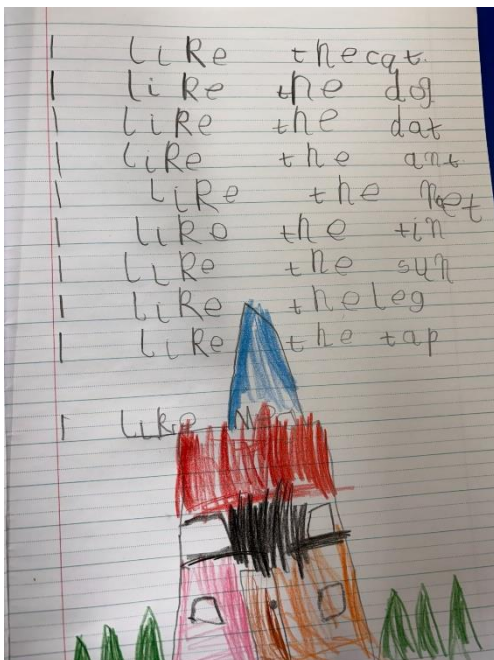 I like the cat.
I like the dog
I like the dat
I like the ant.
I like the net
I like the tin
I like the sun
I like the leg
I like the tap
I like